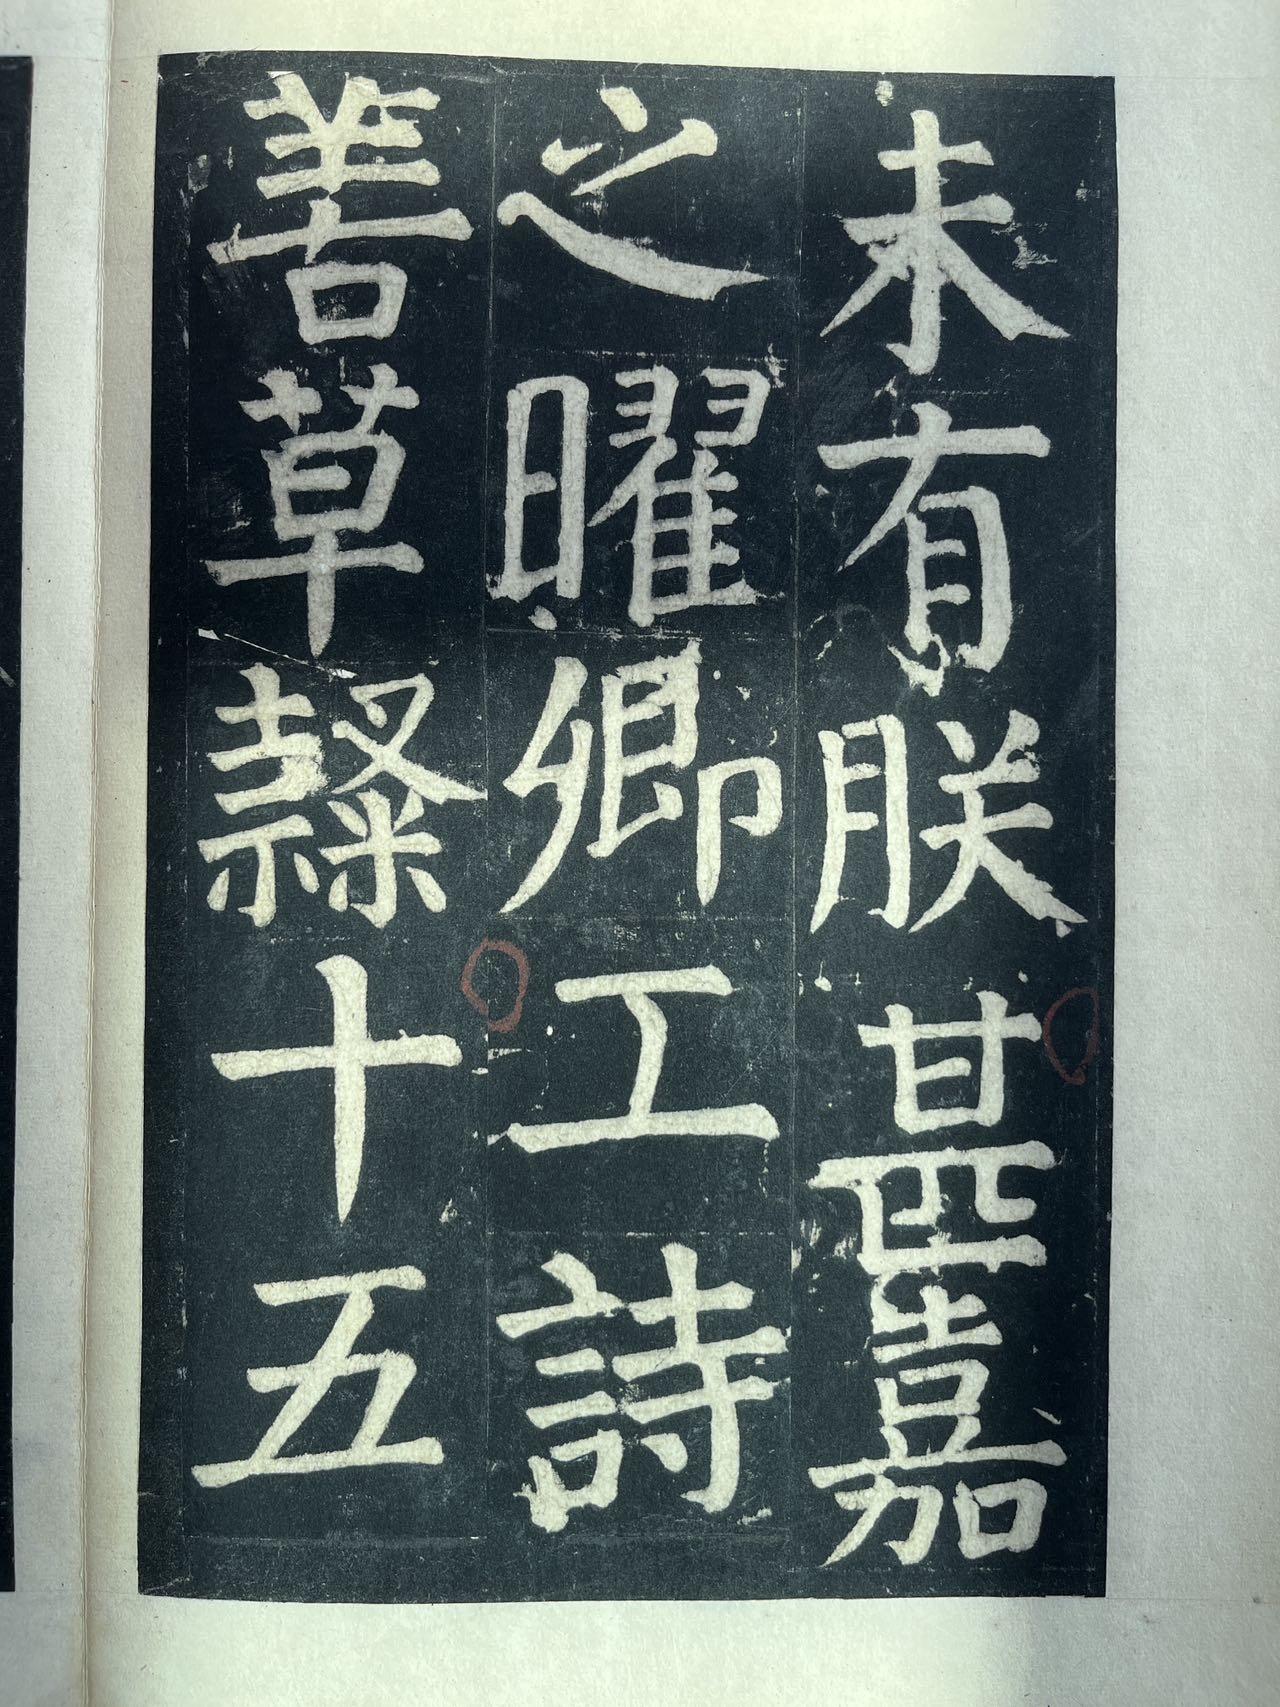 未有朕甚嘉
之曜卿工詩
善草隸十五